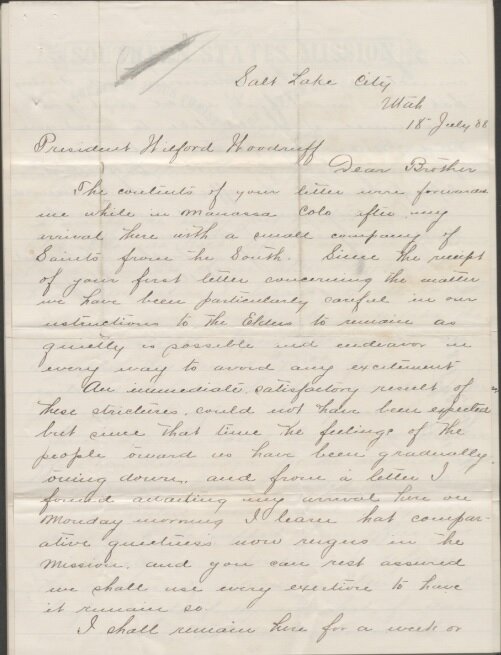 Salt Lake City
Utah
18 July 88
President Wilford Woodruff
Dear Brother
The contents of your letter were forwarded
me while in Manassa Colo after my
arrival there with a small company of
Saints from the South. Since the receipt
of your first letter concerning the matter
we have been particularly careful in our
instructions to the Elders to remain as
quietly as possible and endeavor in
every way to avoid any excitement
An immediate, satisfactory result of
these strictures, could not have been expected
but since that time the feelings of the
people toward us have been gradually
down, and from a letter I
found awaiting my arrival here on
Monday morning I learn that compar-
ative quietness now reigns in the
Mission, and you can rest assured
we shall use every exertion to have
it remain so.
I shall remain here for a week or